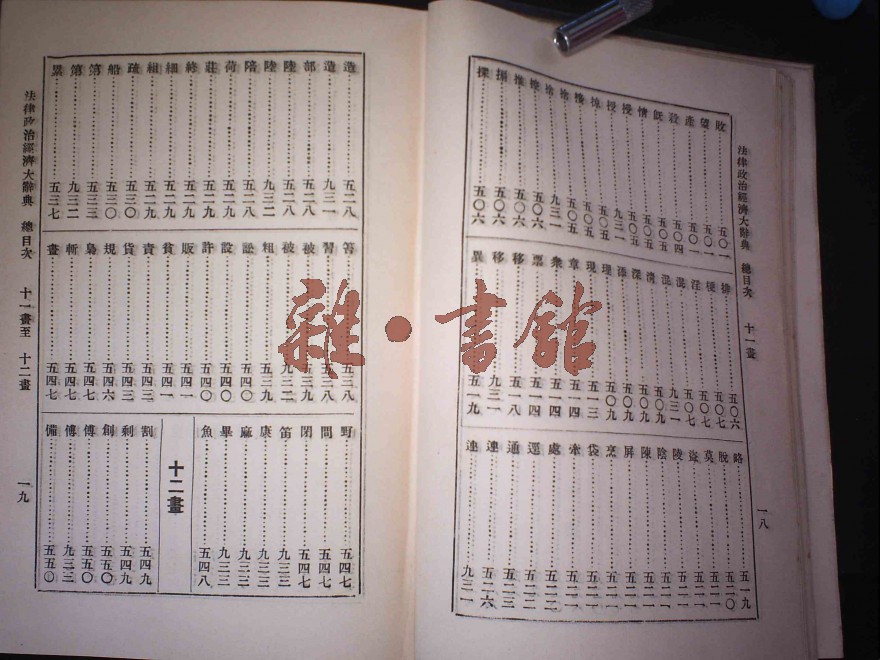 法律政治經濟大辭典 總目次 十一畫 一八
敗 五〇一
望 五〇一
產 五〇一
殺 五〇四
既 五〇五
情 五〇五
授 五〇五
授 九三一
推 五〇六
排 五〇六
淫 五〇七
混 五〇七
混 九三一
清 五〇九
深 五〇九
添 五〇九
理 五〇九
現 五一三
章 五一四
衆 五一四
票 五一四
移 五一八
移 九三一
異 五一九
略 五一九
脫 五二〇
莫 五二一
盜 五二一
陵 五二一
陰 五二一
陳 五二一
屏 五二一
烹 五二一
袋 五二一
牽 五二一
處 五二二
逕 五二二
通 五二三
連 五二六
連 九三一
法律政治經濟大辭典 總目次 十一畫至 十二畫 一九
造 五二八
造 九三一
部 五二八
陸 五二八
陸 九三二
隋 五二八
荷 五二九
莊 五二九
終 五二九
細 五二九
組 五二九
疏 五三〇
船 五三〇
第 五三三
第 九三二
累 五三七
笞 五三八
習 五三八
被 五三九
被 九三二
粗 五三九
訟 五四〇
設 五四〇
許 五四〇
販 五四一
貧 五四一
責 五四三
貨 五四三
規 五四六
梟 五四七
斬 五四七
晝 五四七
野 五四七
問 五四七
閉 五四七
笛 九三二
康 九三二
麻 九三三
畢 九三三
魚 五四八
十二畫
割 五四九
剩 五四九
創 五五〇
傅 五五〇
傅 九三三
備 五五〇
雜·書館